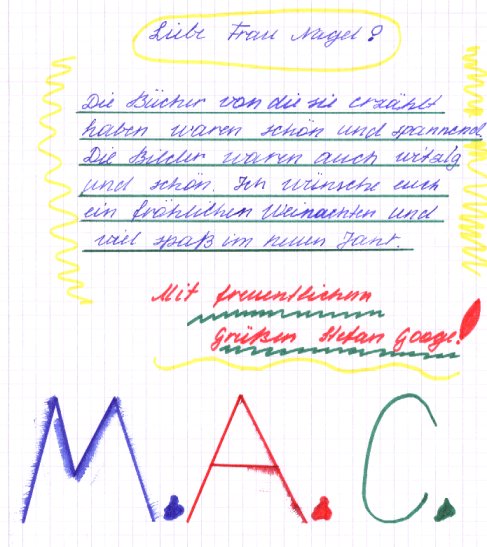 Liebe Frau Nagel!
Die Bücher von die sie erzählt
haben waren schön und spannend
Die Bilder waren auch witzig
und schön. Ich wünsche euch
ein fröhlichen Weinachten und
viel spaß im neuen Jahr.
Mit freuentlichem
Grüßen Stefan
M.A.C.